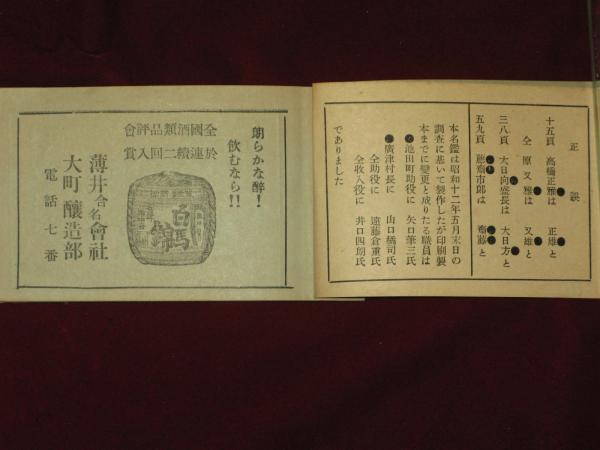 正誤
十五頁 高橋正雅は 正雄と
仝 原又雅は 又雄と
三八頁 大日向盛長は 大日方と
五九頁 藤齋市郎は 齋藤と
本名鑑は昭和十二年五月末日の
調査に基いて製作したが印刷製
本までに變更と成りたる職員は
●池田町助役に 矢口華三氏
●廣津村長に 山口橘司氏
仝助役に 遠藤倉重氏
仝收入役に 井口四朗氏
でありました
朗らかな醉！
飮むなら!!
全國酒類品評會
於連續二回入賞
白馬錦
薄井合名會社
大町釀造部
電話七番